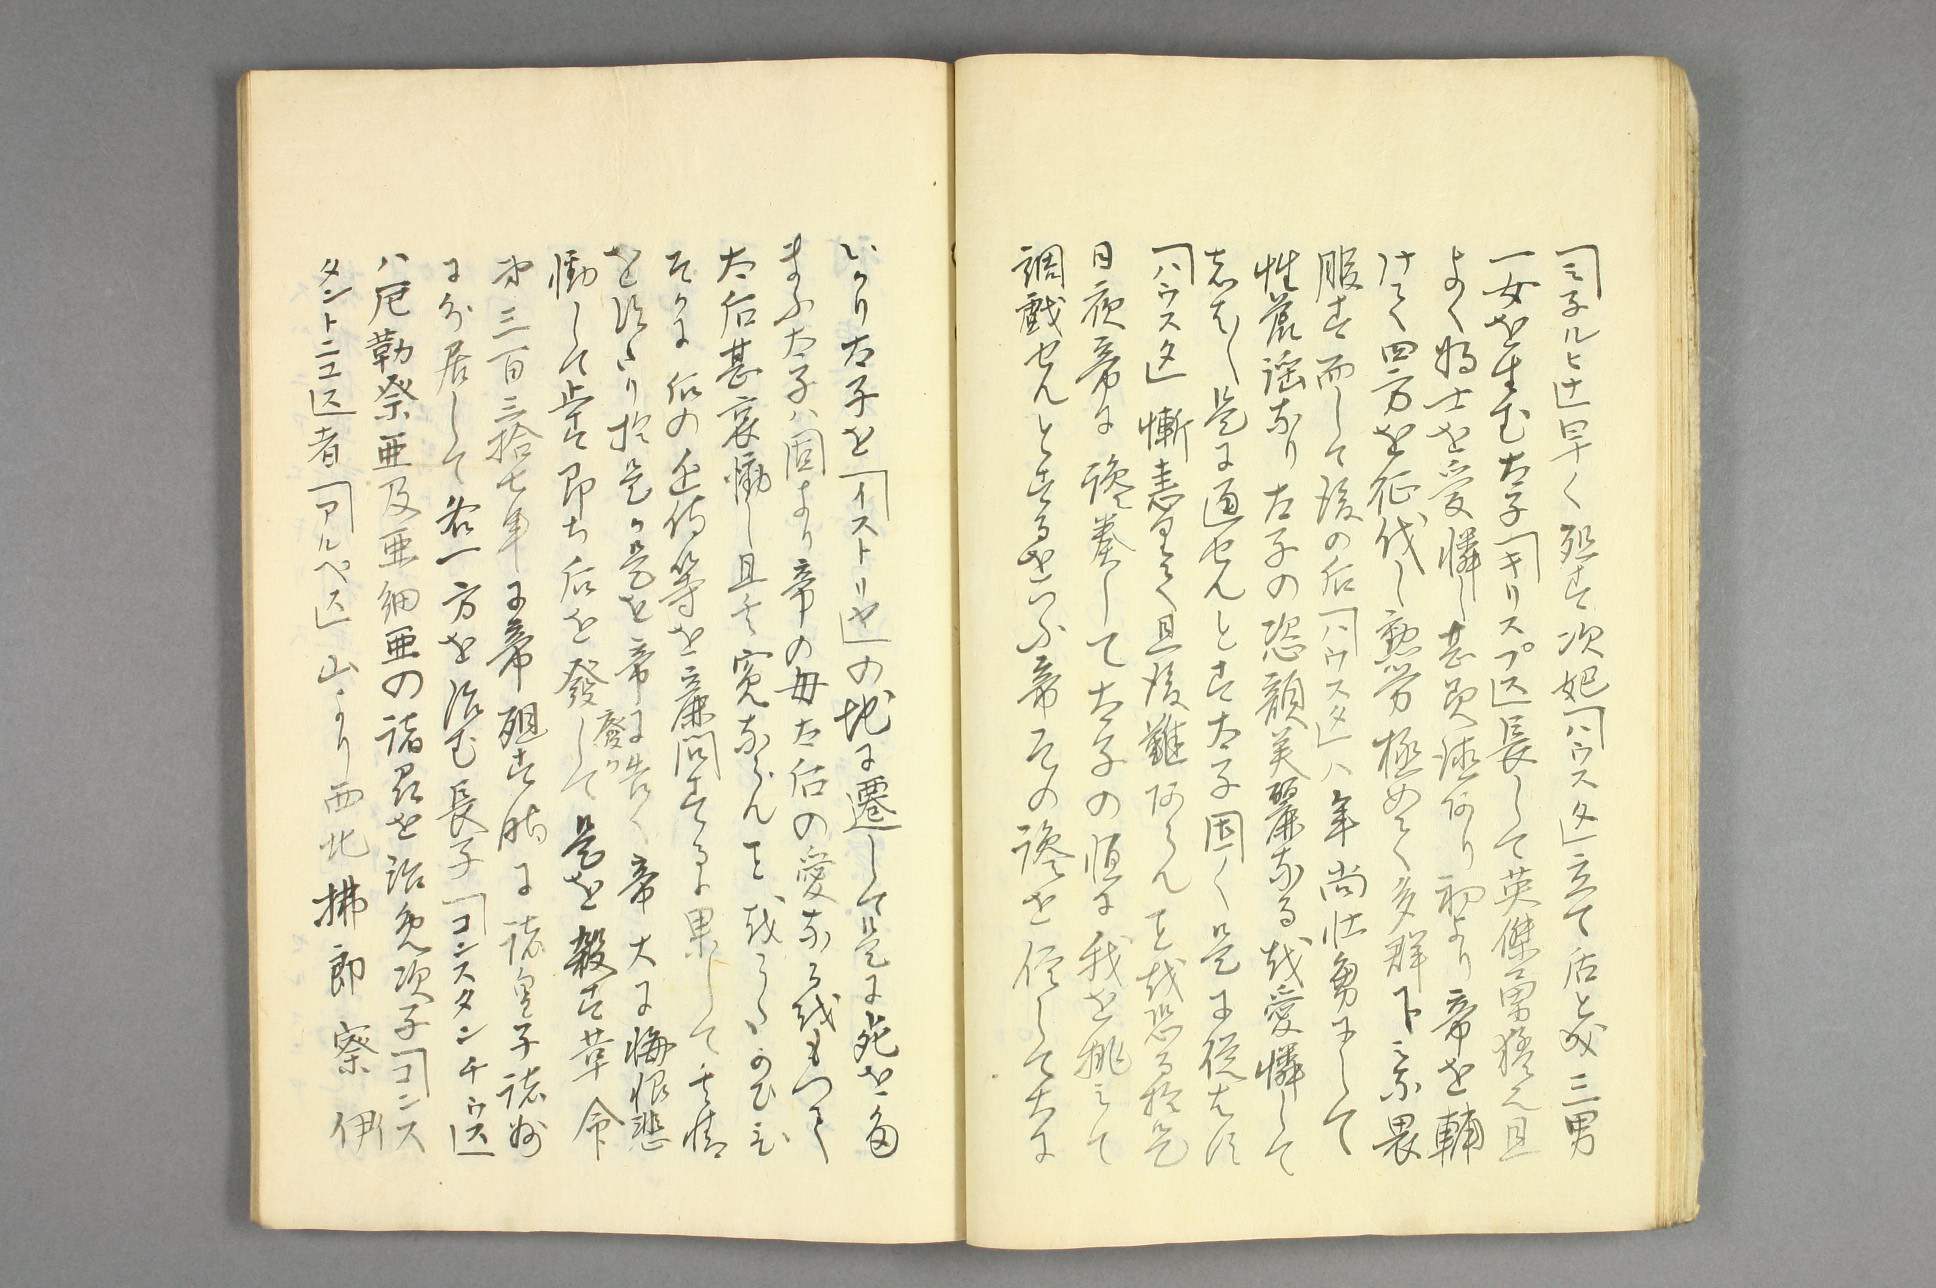 「ミネルヒナ」早く殂す次妃「ハウスタ」立て后と成三男
一女を生む太子「キリスプス」長して英傑勇猛元且
よく将士を愛憐し甚英徳あり初より帝を輔
けて四方を征伐し勲労極めて多群下之敬畏
服す而して後の后「ハウスタ」ハ年尚壮勇にして
性荒淫なり太子の姿顔美麗なるを愛憐して
志ば〳〵是に通せんとす太子固く是に従ハす
「ハウスタ」慚恚して且後難あらんを恐る於是
日夜帝に讒奏して太子の恒に我を挑ミて
調戯せんとするをいふ帝その讒を信して大に
いかり太子を「イストリヤ」の地に遷して是に死を多
まふ太子ハ固より帝の母太后の愛なるをもつて
太后甚哀慟し且其冤ならんをうたかひひ
そかに后の近侍等を廉問するに果して其情
を得たり於是是を帝に告く帝大に悔恨悲
慟して止す即ち后を發して是を殺す革命
廢カ
第三百三拾七年に帝殂す時に諸皇子諸州
に分居して各一方を治む長子「コンスタンチウス」
ハ厄勒祭亜及亜細亜の諸邑を治免次子「コンス
タントニユス」者「アルペス」山より西北拂郎察伊